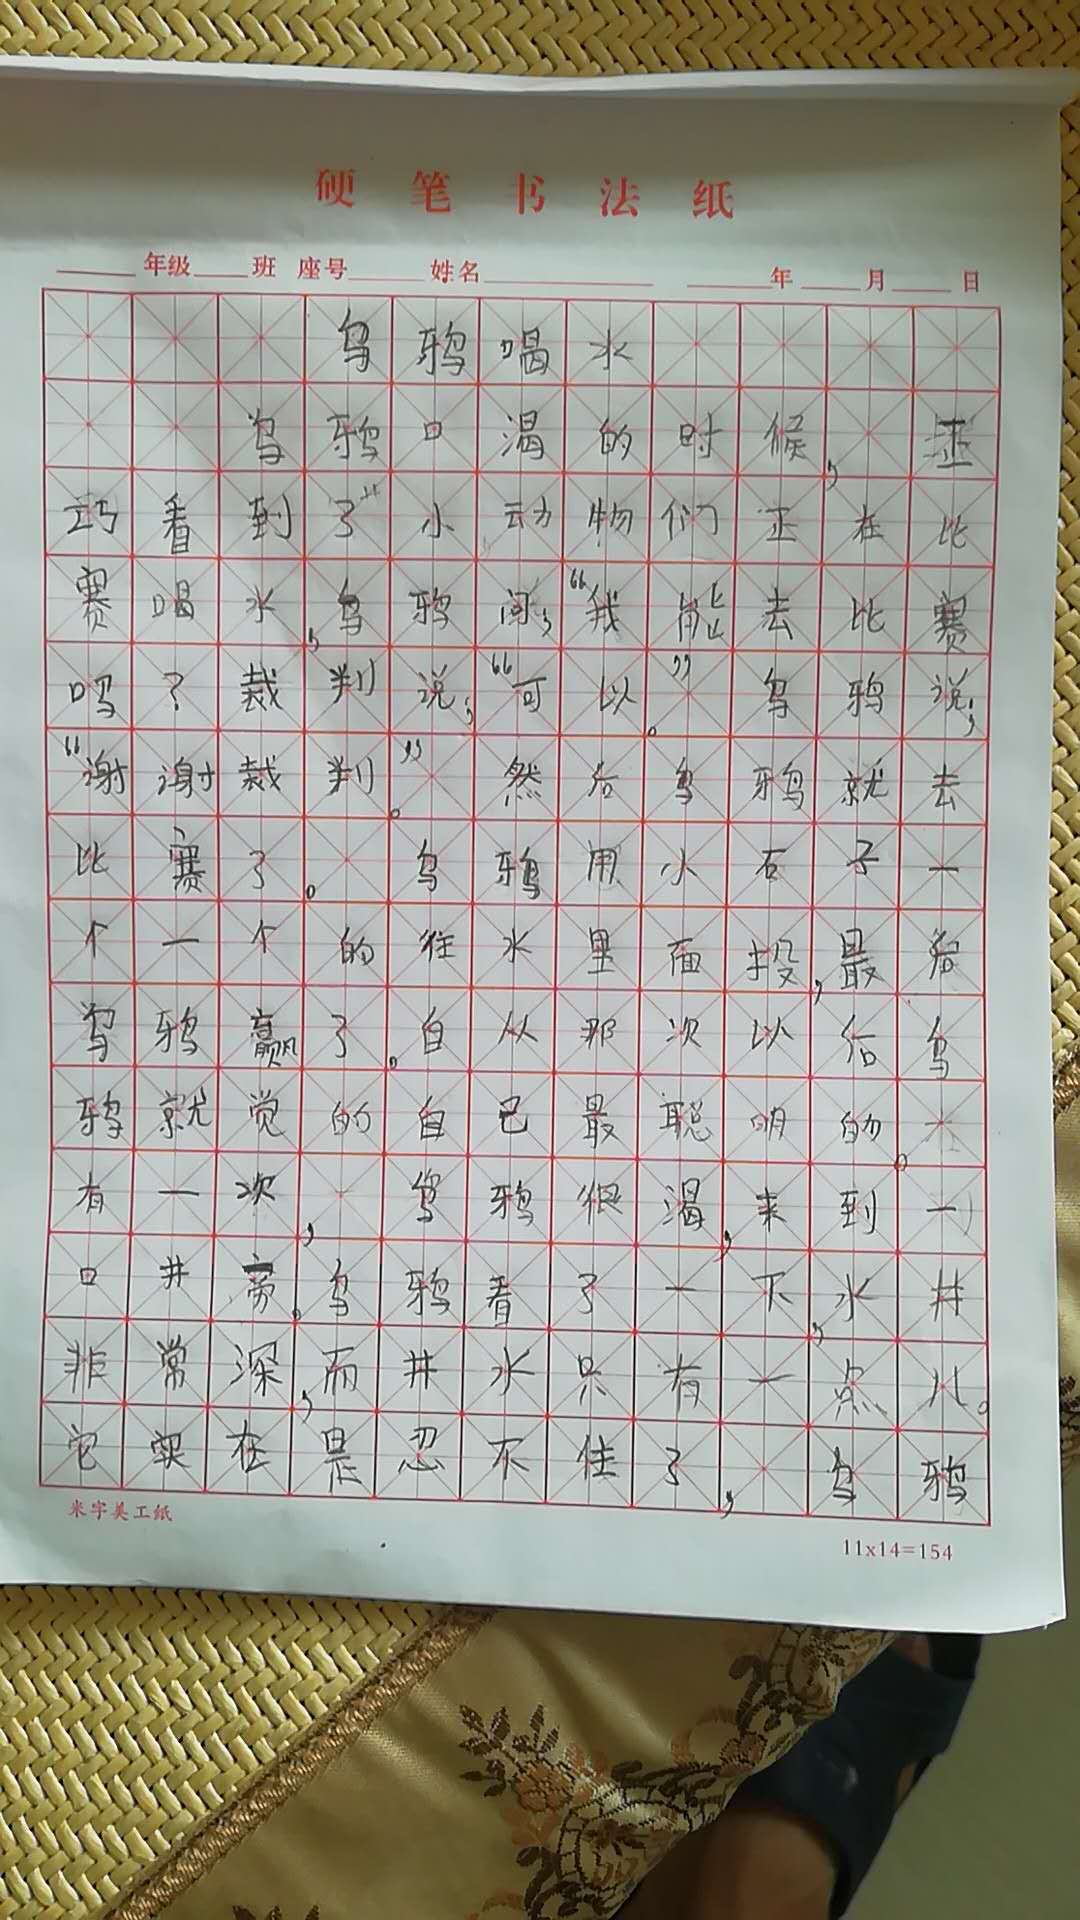 硬笔书法纸
年级 班 座号 姓名 年 月 日
乌鸦喝水
乌鸦口渴的时候,正
巧看到了小动物们正在比
赛喝水,乌鸦问,“我能去比赛
吗?裁判说,“可以。”乌鸦说,
“谢谢裁判。”然后乌鸦就去
比赛了。乌鸦用小石子一
个一个的往水里面投,最后
乌鸦赢了。自从那次以后乌
鸦就觉的自已最聪明的。
有一次,乌鸦很渴,来到一
口井旁。乌鸦看了一下,水井
非常深,而井水只有一点儿。
它实在是忍不住了,乌鸦
米字美工纸
11x14=154